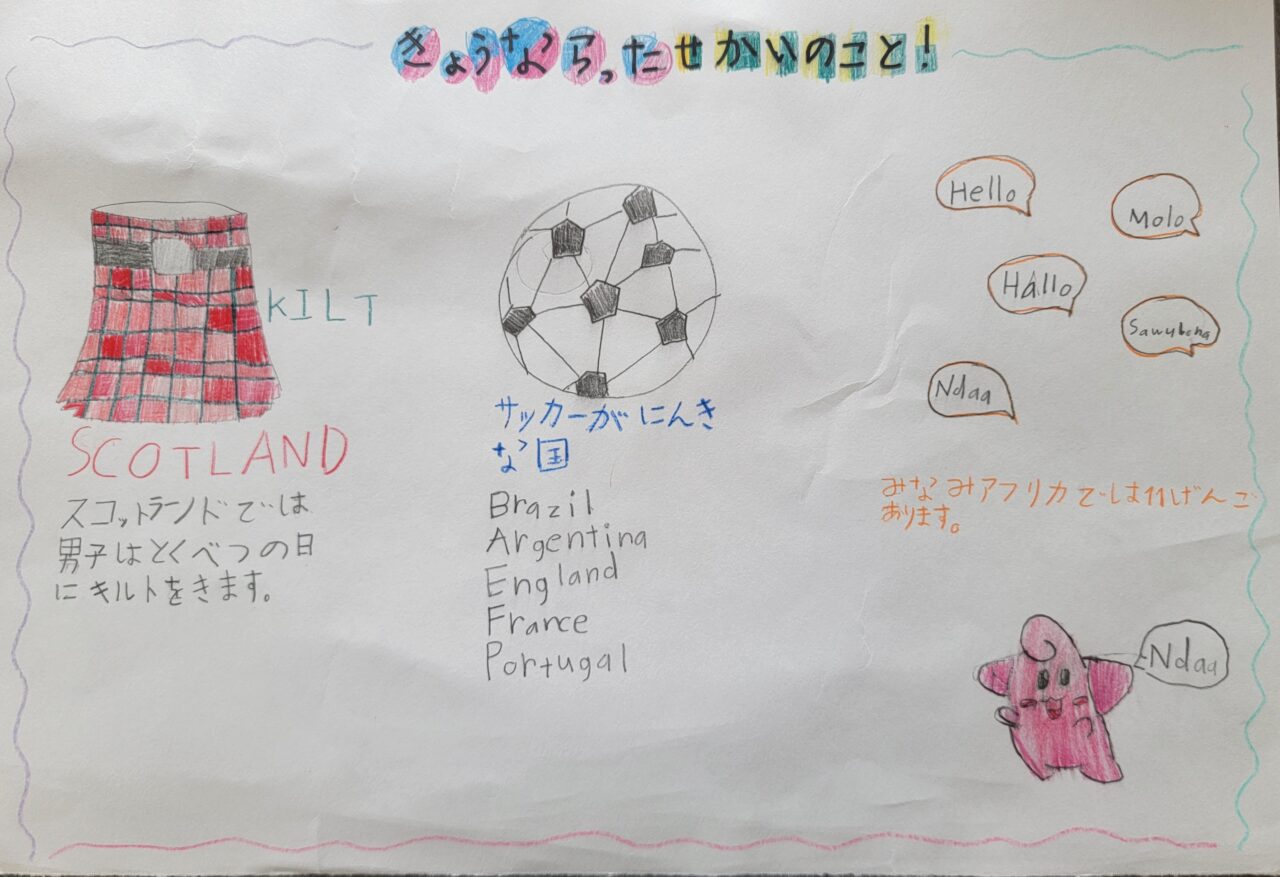 きょうならったせかいのこと!
KILT
SCOTLAND
スコットランドでは
男子はとくべつの日
にキルトをきます。
サッカーがにんき
な国
Brazil
Argentina
England
France
Portugal
Hello
Molo
Hállo
Ndaa
みなみアフリカでは11げんご
あります。
Ndaa